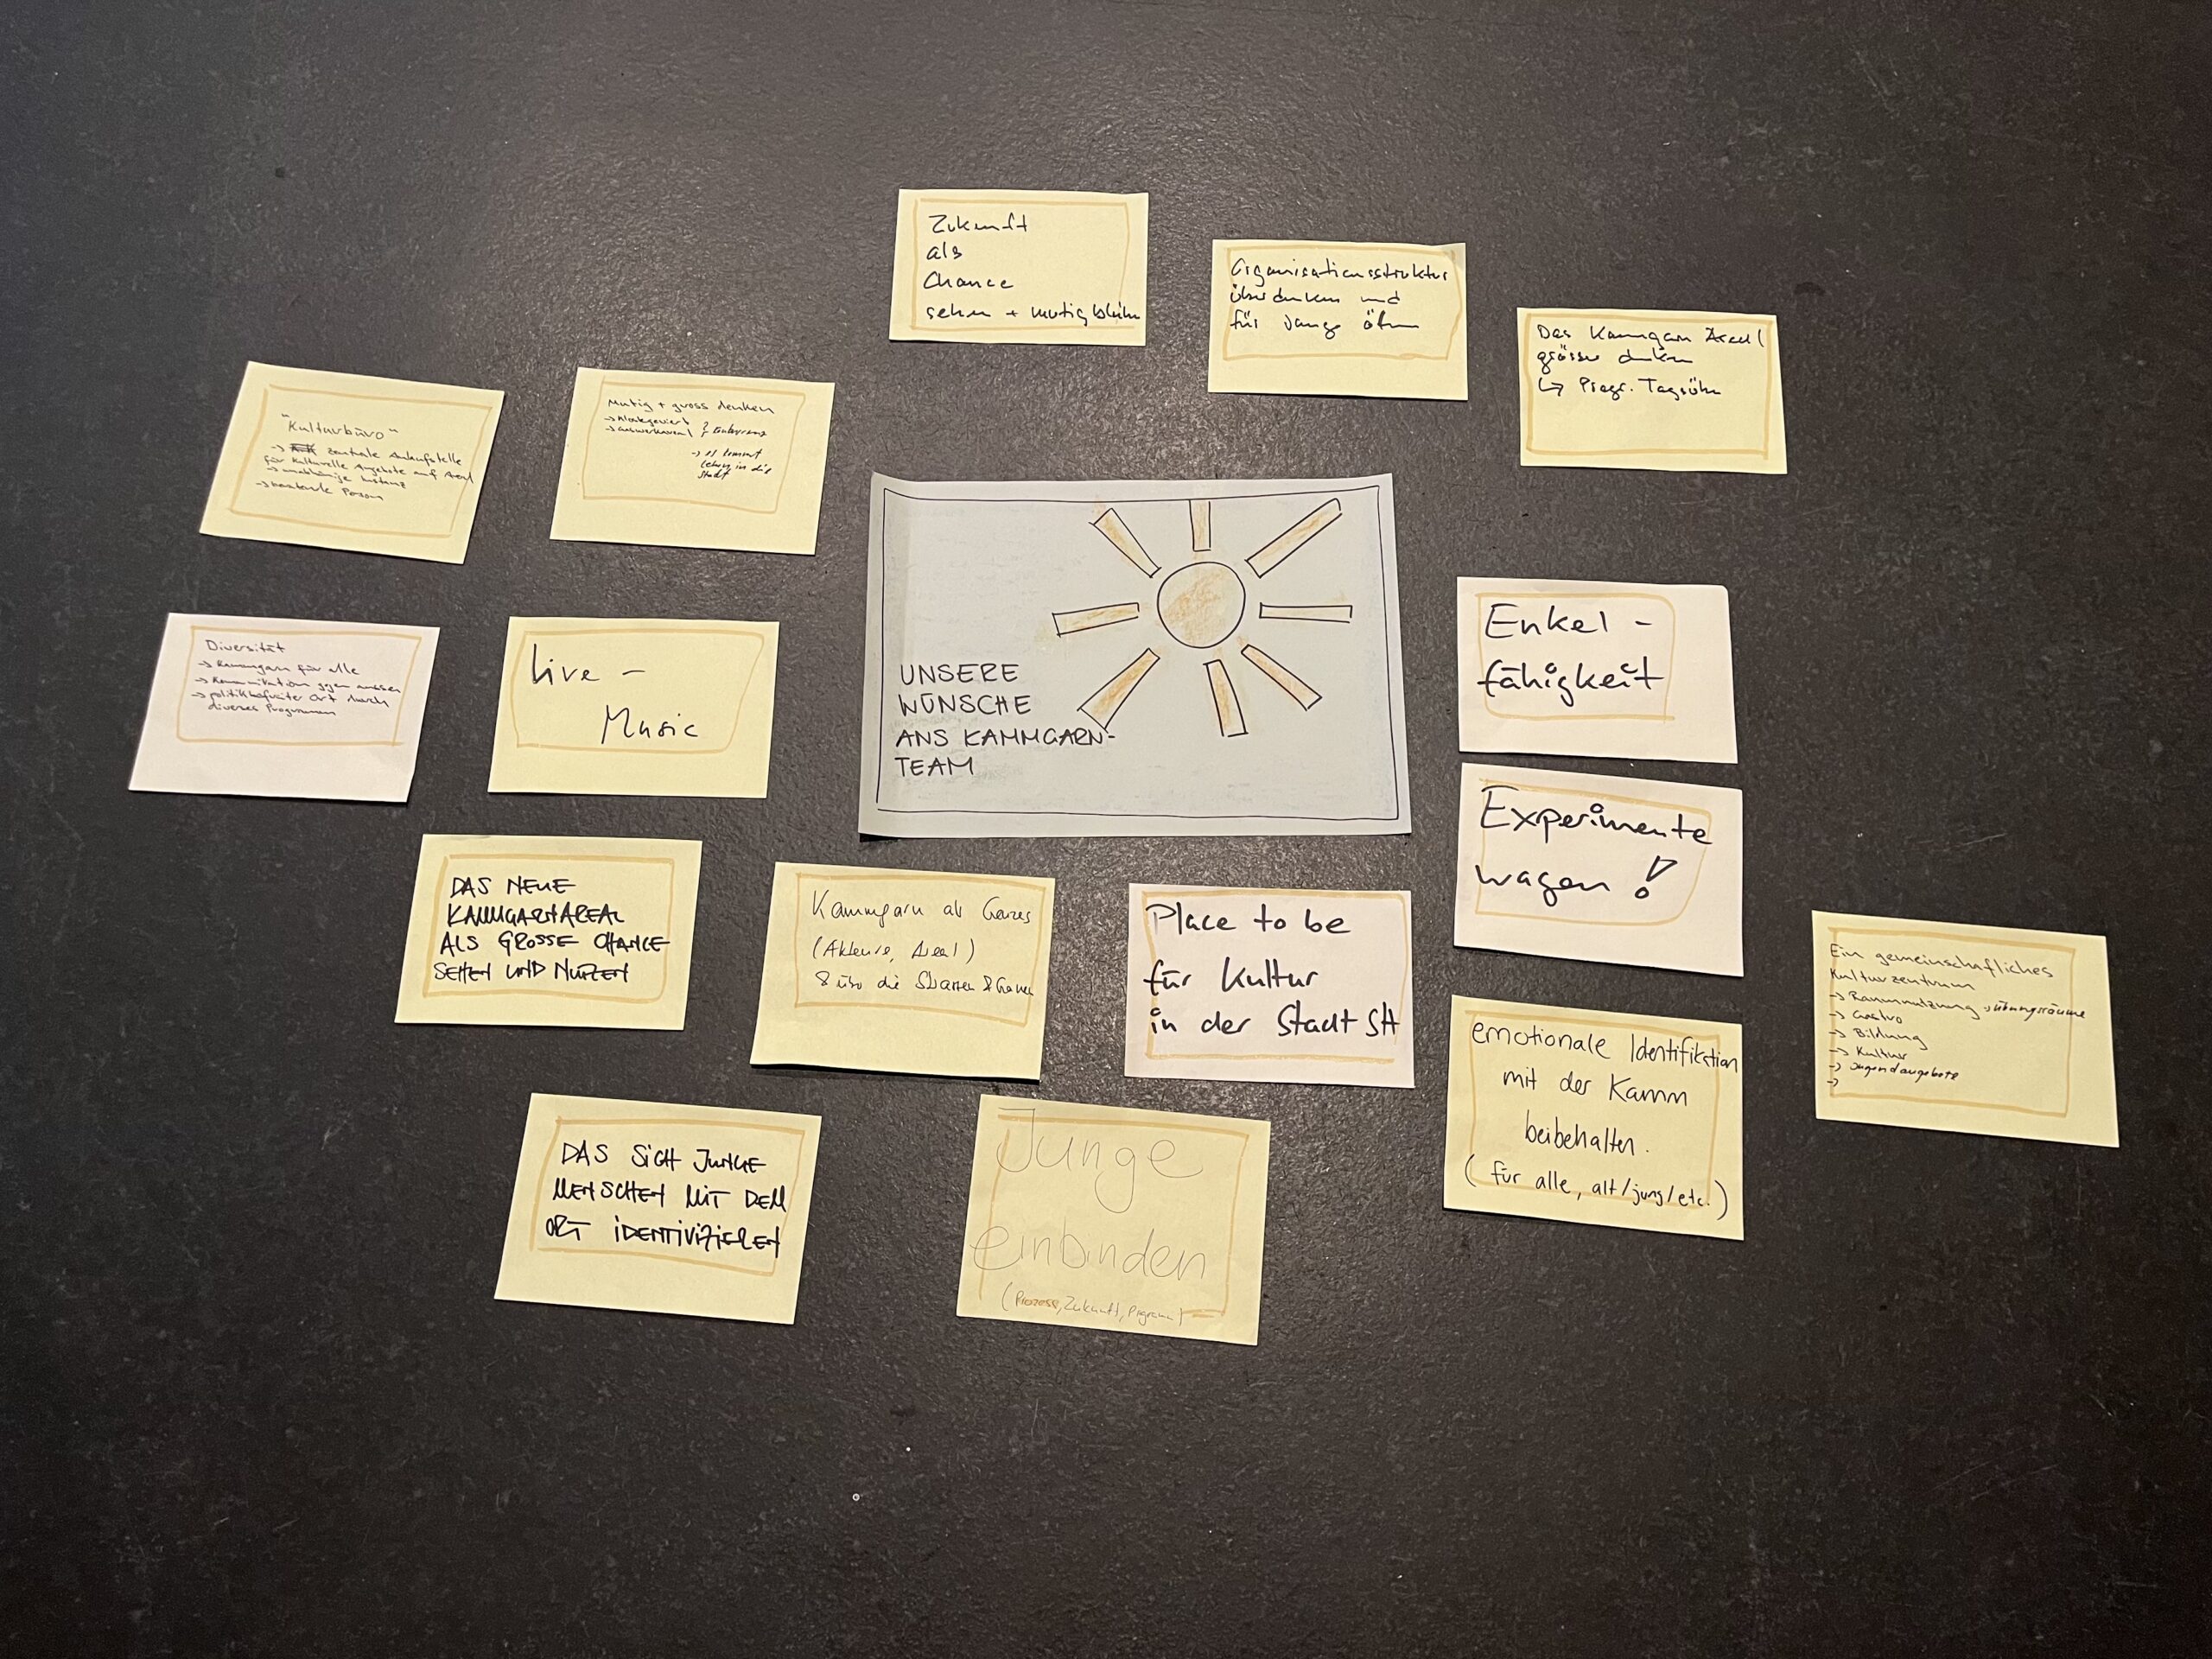 Zukunft
als
Chance
sehen + mutig bleiben
Organisationsstruktur
überdenken und
für Junge öffnen
Das Kammgarn Areal
grösser denken
↳ Progr. Tagsüber
"Kulturbüro"
→ zentrale Anlaufstelle
für kulturelle Angebote auf Areal
→ unabhängige Instanz
→ beratende Person
Mutig + gross denken
→ Klostergeviert
→
→ es kommt
Leben in die
Stadt
UNSERE
WÜNSCHE
ANS KAMMGARN-
TEAM
Diversität
→ Kammgarn für alle
→ Kommunikation gegen aussen
→ politikbefreiter Ort durch
diverses Programm
Live -
Music
Enkel -
fähigkeit
Experimente
wagen!
DAS NEUE
KAMMGARNAREAL
ALS GROSSE CHANCE
SEHEN UND NUTZEN
Kammgarn als Ganzes
(Akteure, Areal)
& über die
Place to be
für Kultur
in der Stadt SH
emotionale Identifikation
mit der Kamm
beibehalten.
(für alle, alt/jung/etc.)
Ein gemeinschafliches
Kulturzentrum
→ Raumnutzung → Übungsräume
→ Gastro
→ Bildung
→ Kultur
→ Jugendangebote
→
DAS SICH JUNGE
MENSCHEN MIT DEM
ORT IDENTIVIZIEREN
Junge
einbinden
(Prozess, Zukunft, Programm)